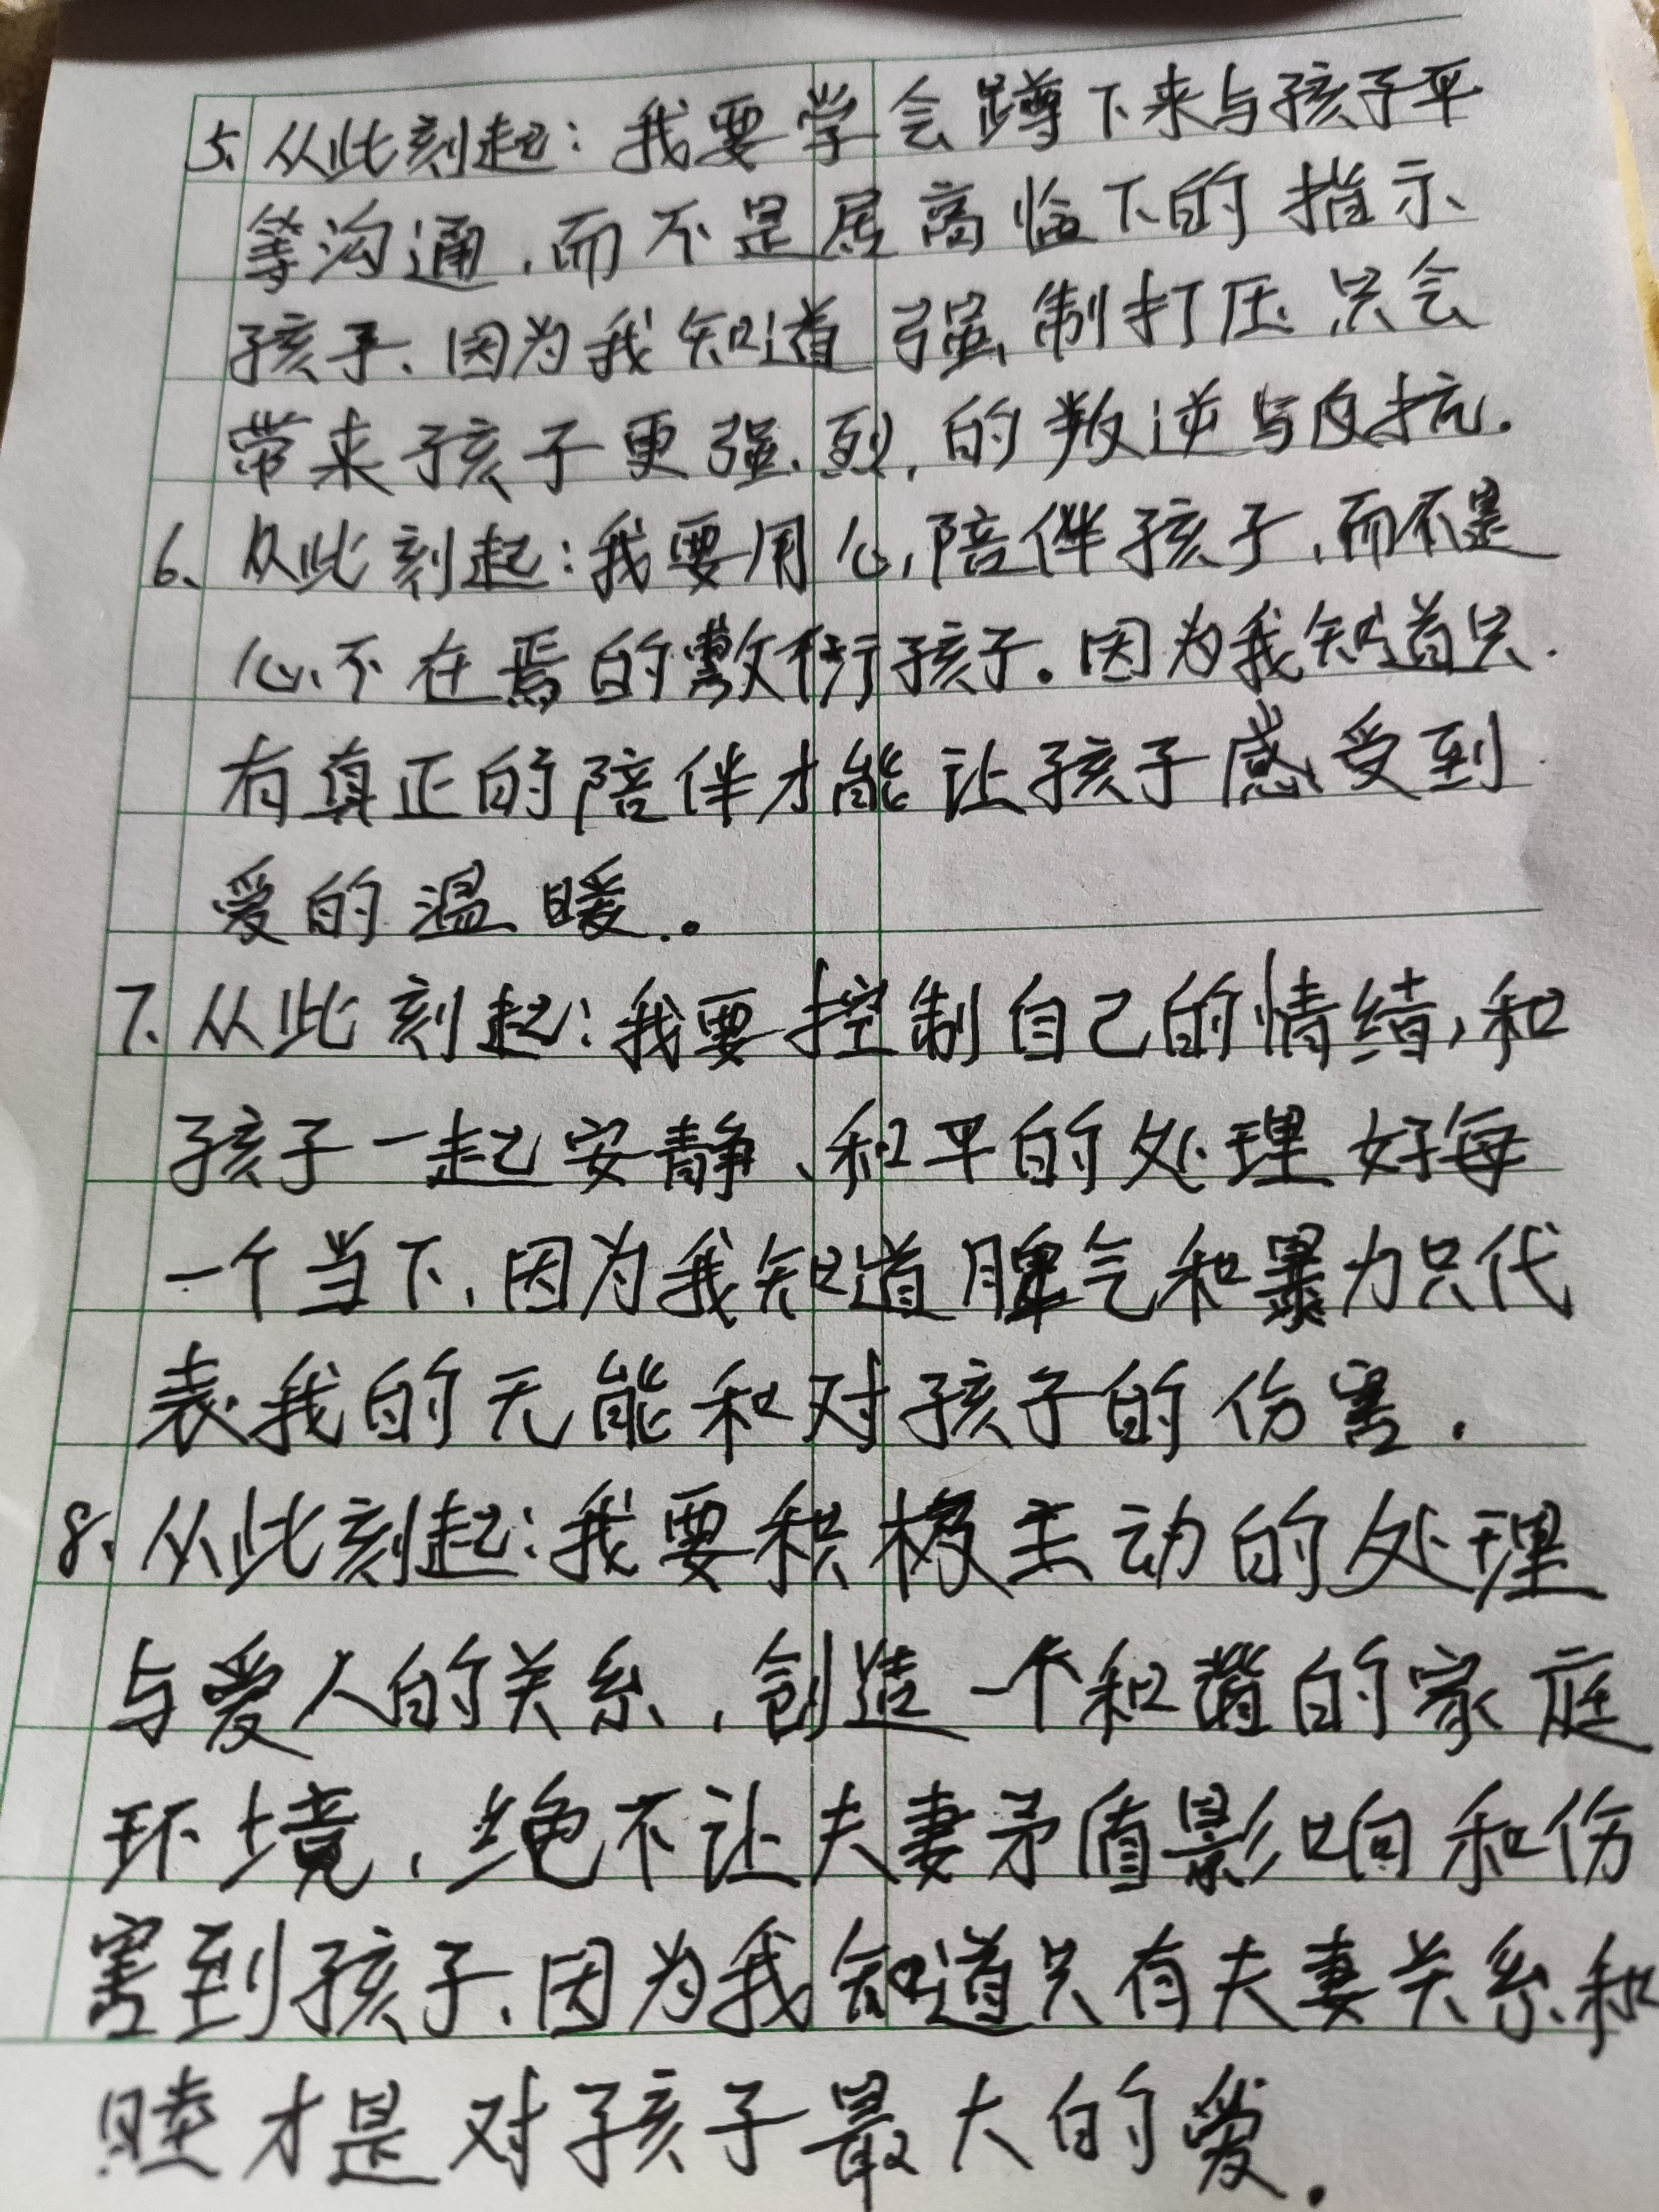 5、从此刻起：我要学会蹲下来与孩子平
等沟通，而不是居高临下的指示
孩子、因为我知道强制打压只会
带来孩子更强烈的叛逆与反抗.
6、从此刻起：我要用心陪伴孩子，而不是
心不在焉的敷衍孩子。因为我知道只
有真正的陪伴才能让孩子感受到
爱的温暖。
7、从此刻起：我要控制自己的情绪，和
孩子一起安静、和平的处理好每
一个当下，因为我知道脾气和暴力只代
表我的无能和对孩子的伤害.
8、从此刻起：我要积极主动的处理
与爱人的关系，创造一个和谐的家庭
环境，绝不让夫妻矛盾影响和伤
害到孩子、因为我知道只有夫妻关系和
睦才是对孩子最大的爱.